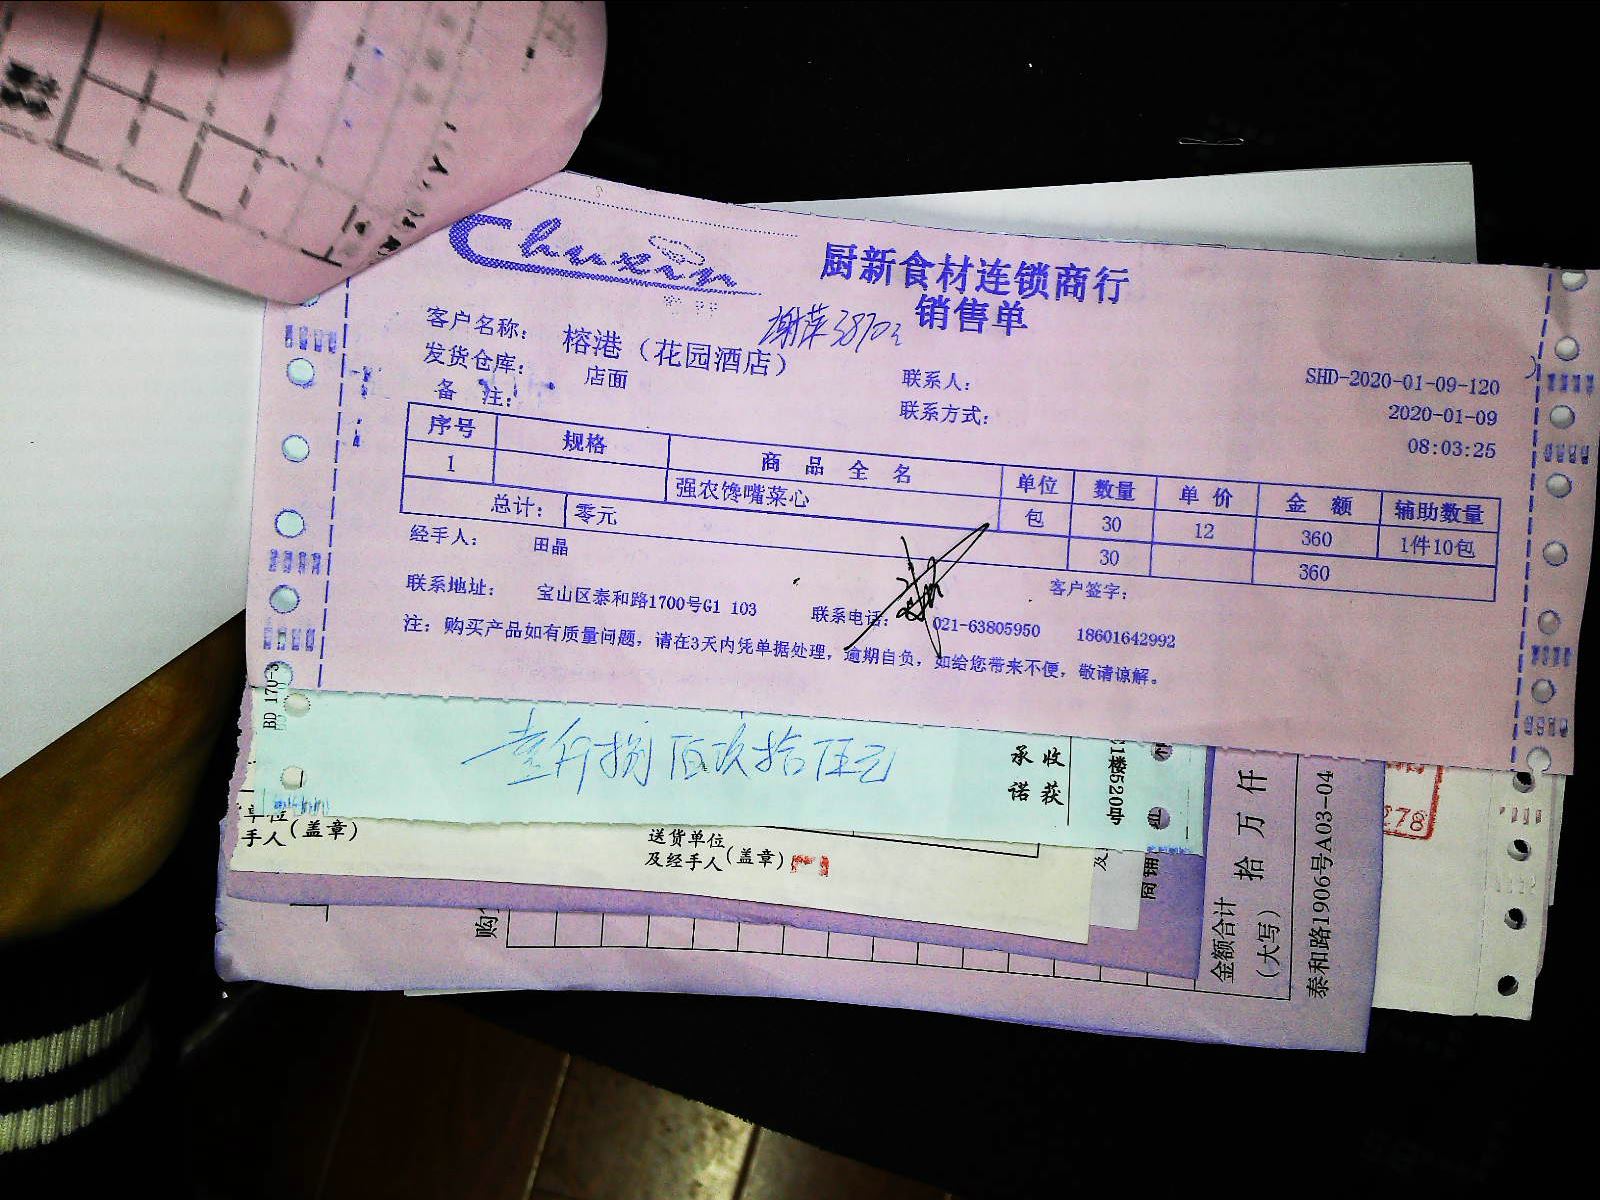 Chuxin
厨新食材连锁商行
销售单
客户名称: 榕港（花园酒店）
发货仓库: 店面
联系人:
SHD-2020-01-09-120
备 注:
联系方式:
2020-01-09
08:03:25
序号 规格 商 品 全 名 单位 数量 单 价 金 额 辅助数量
1 强农馋嘴菜心 包 30 12 360 1件10包
总计: 零元 30 360
经手人: 田晶
客户签字:
联系地址: 宝山区泰和路1700号G1 103 联系电话: 021-63805950 18601642992
注: 购买产品如有质量问题, 请在3天内凭单据处理, 逾期自负, 如给您带来不便, 敬请谅解。
BD 170-3
壹仟捌佰玖拾伍元
承诺
收获
手人(盖章)
送货单位
及经手人(盖章)
购
金额合计
(大写)
拾 万 仟
泰和路1906号A03-04
278